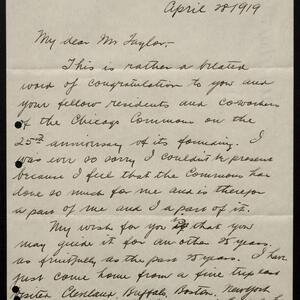 April 28 1919
My dear Mr Taylor,-
This is rather a belated
word of congratulation to you and
your fellow residents and coworkers
of the Chicago Commons on the
25th anniversary of its founding. I
was ever so sorry I couldn't be present
because I feel that the Commons has
done so much for me and is therefor
a part of me and I a part of it.
My wish for you is that you
may guide it for an other 25 years
as fruitfully as the past 25 years. I have
just come home from a fine trip
Cleveland, Buffalo, Boston, New York